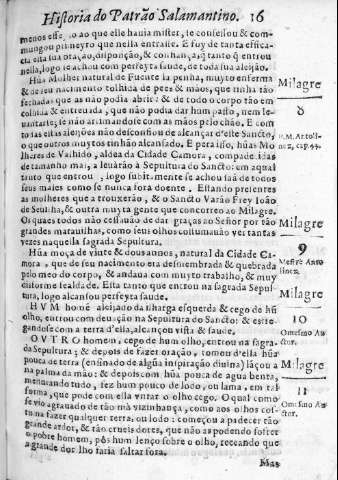 Historia do Patrão Salamantino. 16
menos esse, so ao que elle hauia mister, se confessou & com-
mungou primeyro que nella entrasse. E foy de tanta effica-
cia esta sua oração, & confiança, q̃ tanto q̃ entrou
nella, logo se achou com perfeyta saude, de toda sua aleijão.
Hũa Molher natural de Fuente la penha, muyto enferma
& de seu nacimento tolhida de pees & mãos, que tinha tão
fechadas que as não podia abrir: & de todo o corpo tão en
colhida & entreuada, que não podia dar hum passo, nem le-
uantarse, se não arrimandose com as mãos pelo chão. E com
todas estas aleijões não desconfiou de alcançar d'este Sancto,
o que outros muytos tinhão alcansado. E pera isso, hũas Mo
lheres de Vailhido, aldea da Cidade Camora, compadecidas
de tamanho mal, a leuárão à Sepultura do Sancto: em aqual
tanto que entrou, logo subitamente se achou saã de todos
seus males como se nunca fora doente. Estando presentes
as molheres que a trouxerão, & o Sancto Varão Frey Ioão
de Seuilha, & outra muyta gente que concorreo ao Milagre.
Os quaes todos não cessauão de dar graças ao Senhor por tão
grandes marauilhas, como seus olhos costumauão ver tantas
vezes naquella sagrada Sepultura.
Hũa moça de vinte & dous annos, natural da Cidade Ca-
mora, que de seu nacimento era desmembrada & quebrada
pelo meo do corpo, & andaua com muyto trabalho, & muy
disforme fealdade. Esta tanto que entrou na sagrada Sepul-
tura, logo alcansou perfeyta saude.
HVM homẽ aleijado da ilharga esquerda & cego de hũ
olho, entrou com deuação na Sepultura do Sancto: & esfre-
gandose com a terra d'ella, alcançou vista & saude.
OVTRO homem, cego de hum olho, entrou na sagra-
da Sepultura; & depois de fazer oração, tomou d'ella hũa
pouca de terra (ensinado de algũa inspiração diuina) laçou a
na palma da mão: & depois com hũa pouca de agua benta,
meneando tudo, fez hum pouco de lodo, ou lama, em tal
forma, que pode com ella vntar o olho cego. O qual como
se vio agrauado de tão má vizinhança, como aos olhos cos-
tuma fazer qualquer terra, ou lodo: começou a padecer tão
grande ardor, & tão crueis dores, que não as podendo sofrer
o pobre homem, pôs hum lenço sobre o olho, receando que
a grande dor lho faria saltar fora.
Mas
Milagre
8
P. M. Antoli-
nez, cap. 44.
Milagre
9
Mestre Anto
linez.
Milagre
10
Omesmo Au
ctor.
Milagre
11
Omesmo Au
ctor.